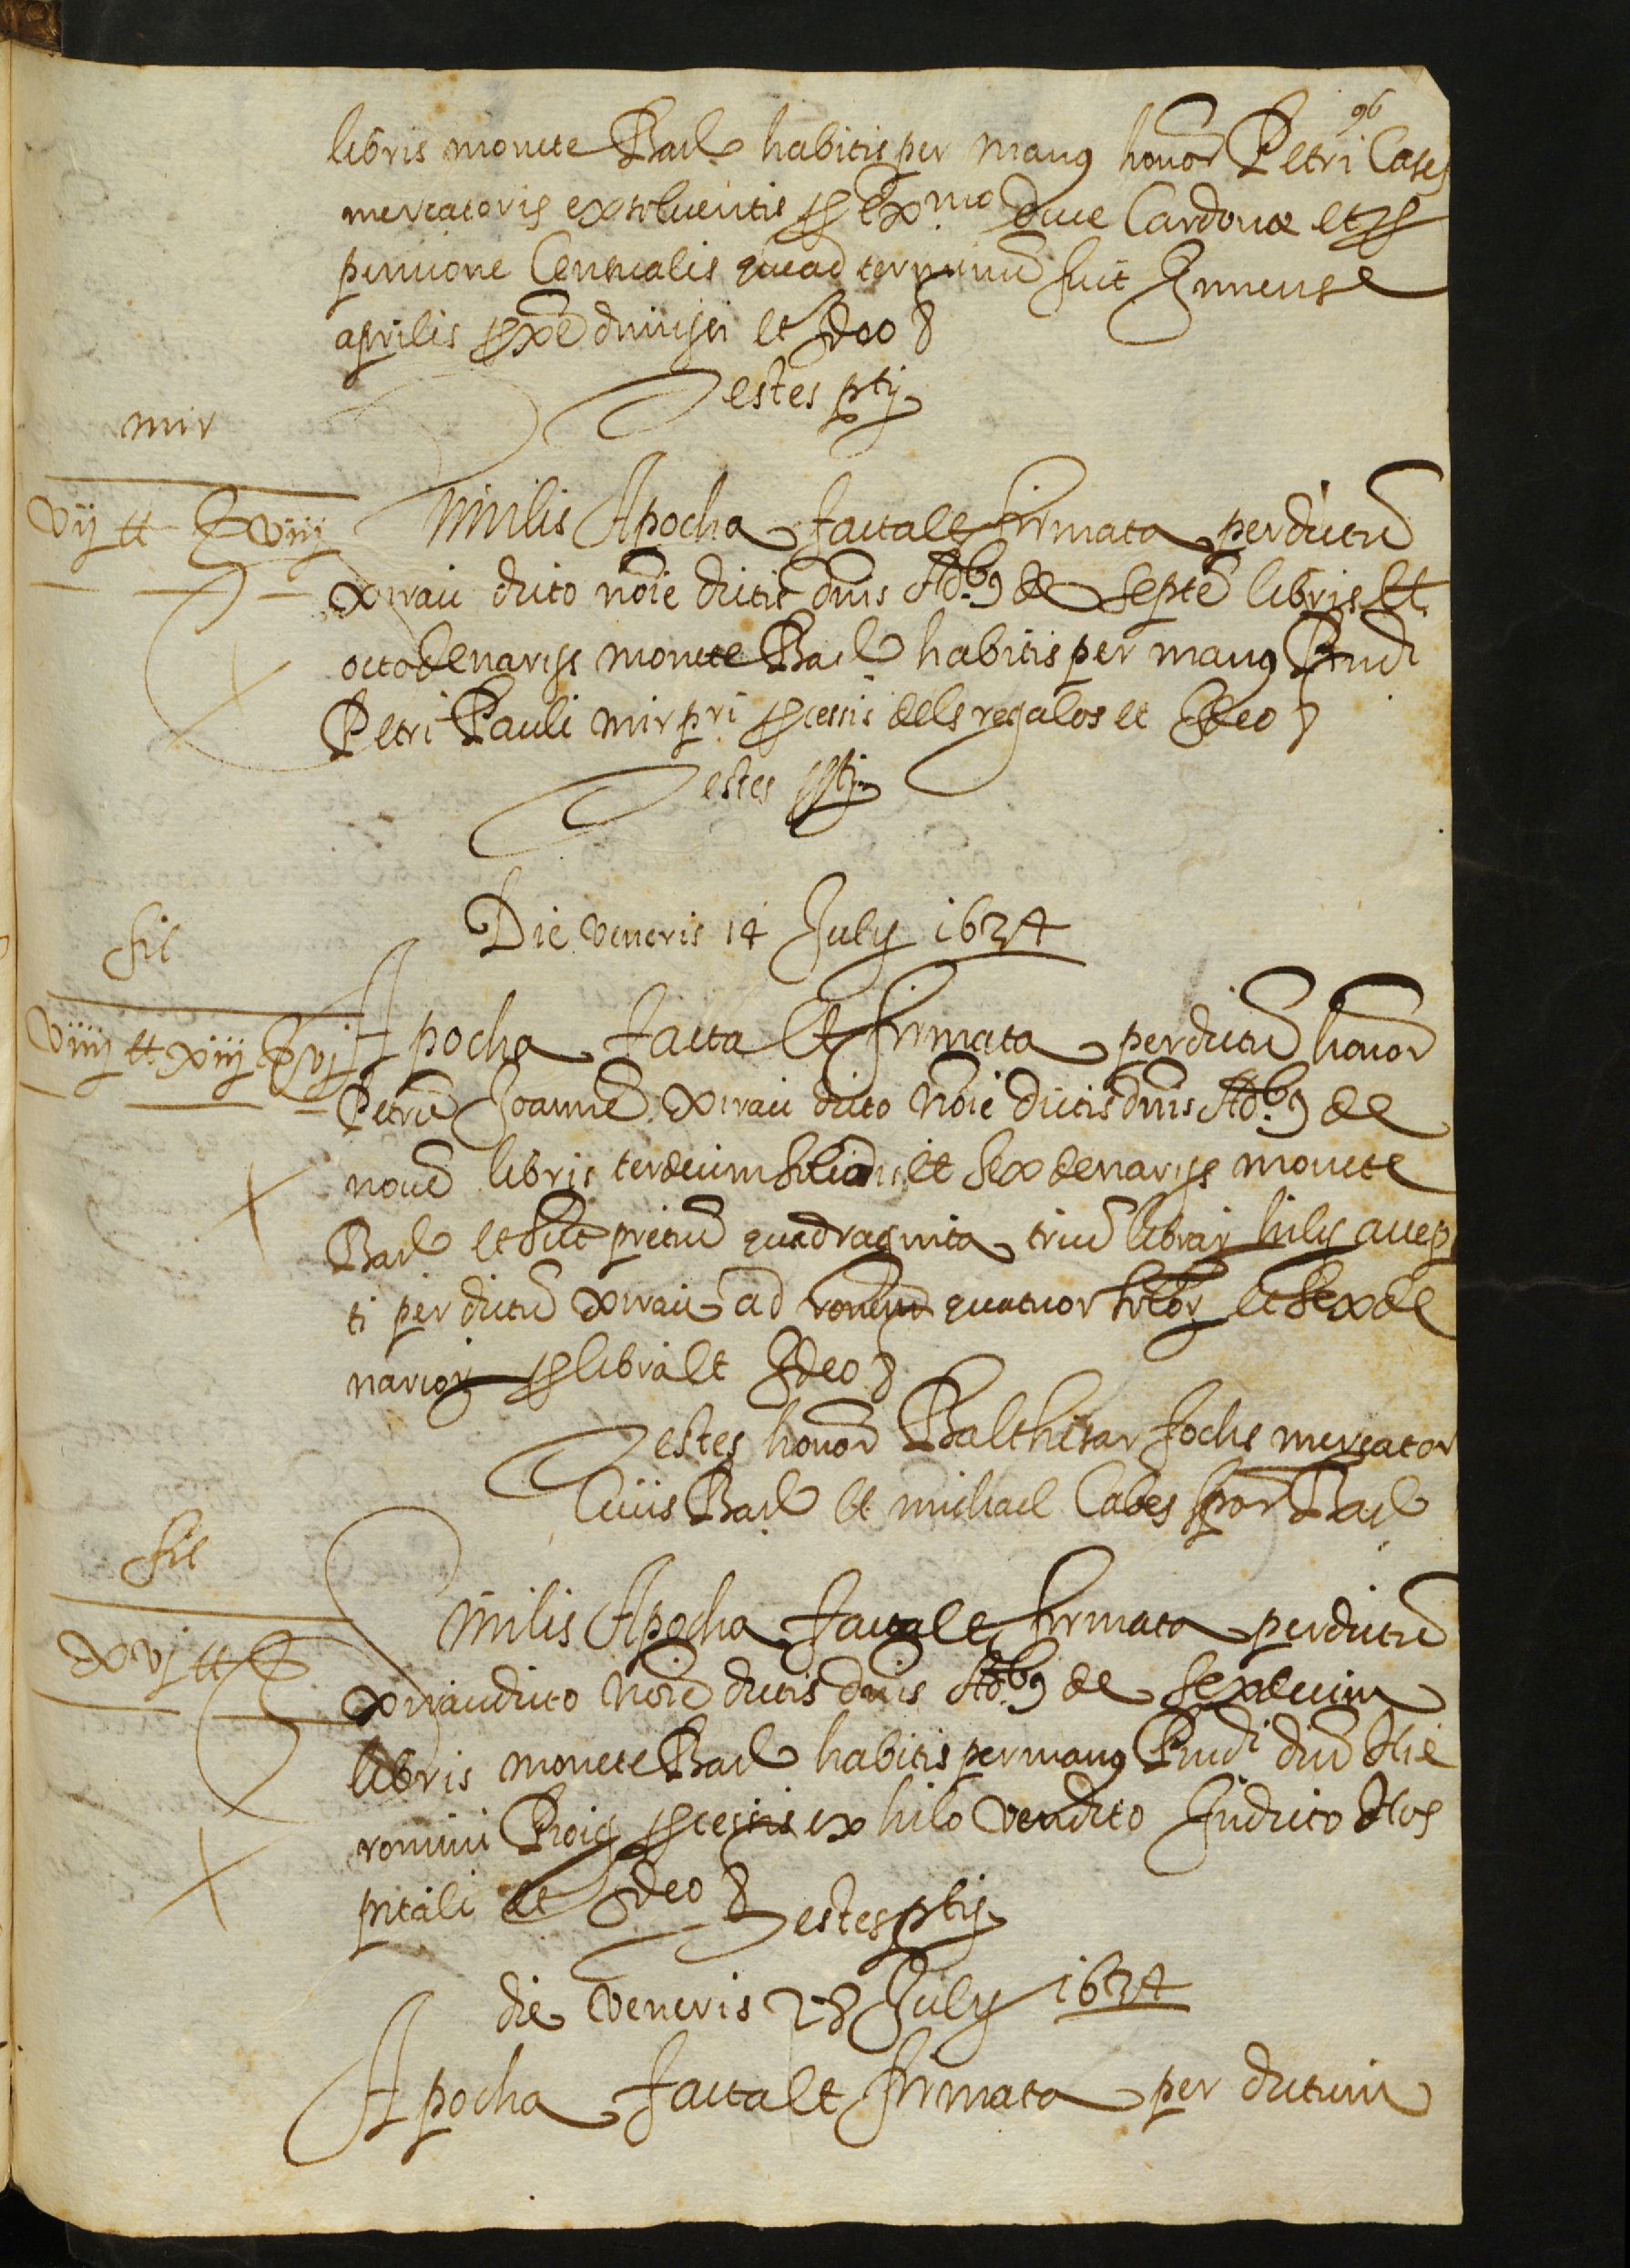 96
libris monete Barl habitis per manus honor Petri Cases
mercatoris exsolventis pro Exmo duce Cardonæ et pro
pensione Censualis que ad terminū fuit In mense
aprilis pxē dimissi et Ideo &
Testes ptij
mir
vij tt S viiij
Similis Apocha facta et firmata per dictū
Xirau dicto nōie dictis dnis Adbꝰ de septē libris et
octo denarijs monete Barl habitis per manus Prudi
Petri Pauli mir pri process dels regalos et Ideo &
Testes ptij
Die veneris 14 July 1634
fil
viiij tt xiij S vj
Apocha facta et firmata per dictū honor
Petrū Joannē Xirau dicto nōie dictis dnis Adbꝰ de
novē libris terdecim solidis et sex denarijs monete
Barl et sūt pretiū quadraginta triū librar fily accep
ti per dictū Xirau ad rōnem quatuor solidor et sex de
narior pro libra et Ideo &
Testes honor Balthesar Jochs mercator
Civis Barl et michael Cabes scriptor Barl
fil
xvj tt S
Similis Apocha facta et firmata per dictū
Xirau dicto nōie dictis dnis Adbꝰ de sexdecim
libris monete Barl habitis per manus Prudi dni Hie
romini Roig ex filo vendito In dicto Hos
pitali et Ideo & Testes ptij
die veneris 28 July 1634
Apocha facta et firmata per dictum